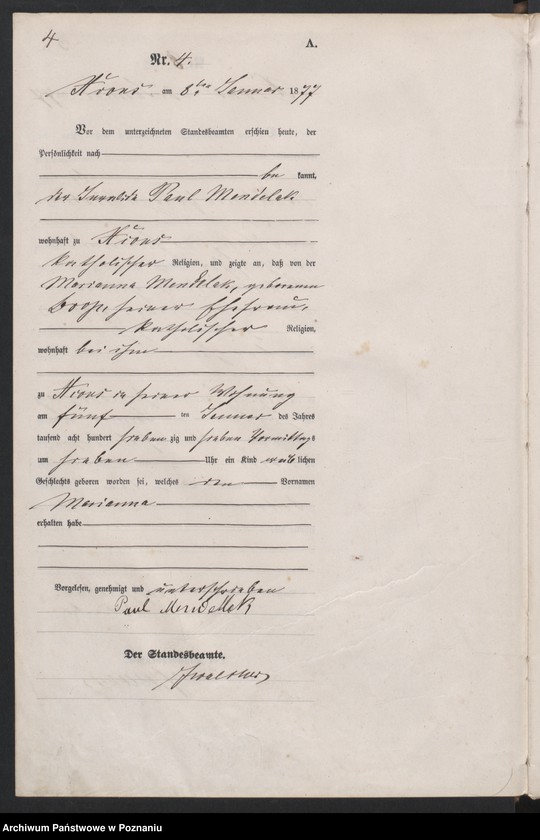 4
A.
Nr. 4.
Xions, am 8ten Januar 1877
Vor dem unterzeichneten Standesbeamten erschien heute, der
Persönlichkeit nach
be kannt,
der Invalide Paul Mendelak
wohnhaft zu Xions
katholischer Religion, und zeigte an, daß von der
Marianna Mendelak, geborenen
seiner Ehefrau,
katholischer Religion,
wohnhaft bei ihm
zu Xions in seiner Wohnung
am fünf ten Januar des Jahres
tausend acht hundert sieben zig und sieben Vormittags
um sieben Uhr ein Kind weib lichen
Geschlechts geboren worden sei, welches den Vornamen
Marianna
erhalten habe
Vorgelesen, genehmigt und unterschrieben
Paul Mendelak
Der Standesbeamte.
Archiwum Państwowe w Poznaniu